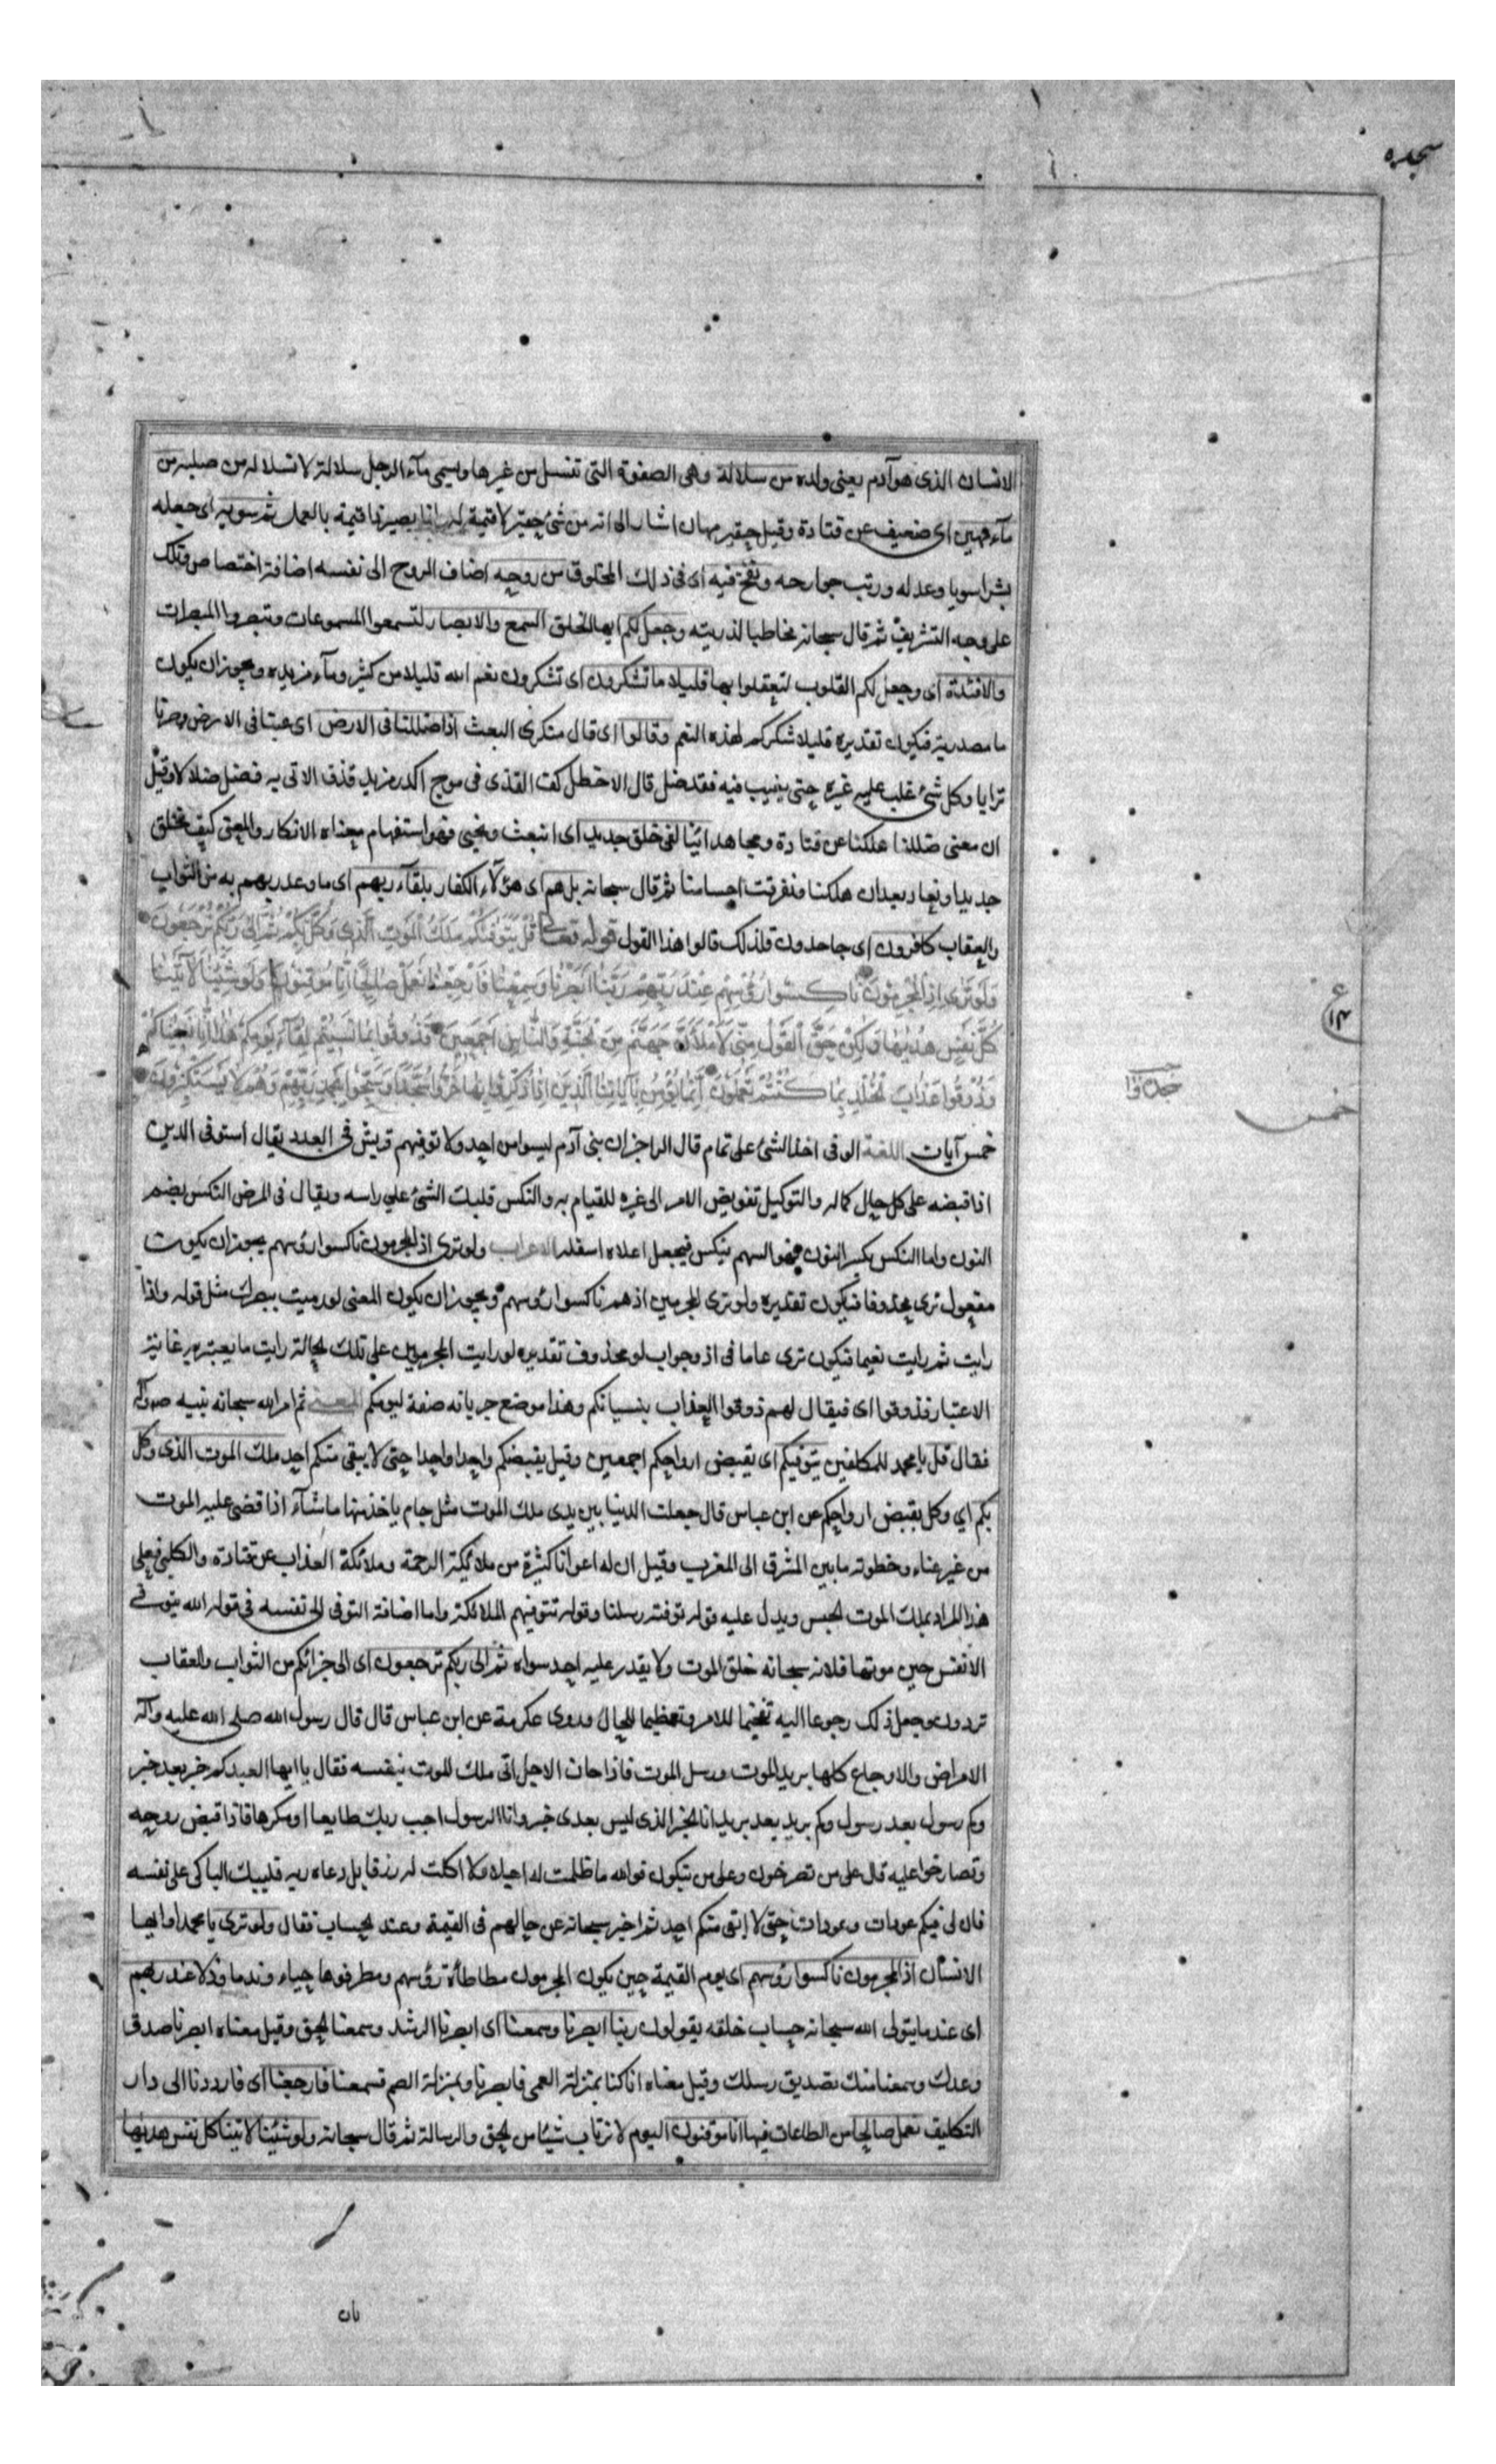 سجده
الانسان الذى هو آدم يعنى ولده من سلالة وهى الصفوة التى تنسل من غيرها ويسمى مآء الرجل سلالة لانسلاله من صلبه من
مآء مهين اى ضعيف عن قتادة وقيل حقير مهان اشار الى انه من شئ حقير لا قيمة له وانما يصير ذا قيمة بالعمل ثم سويه اى جعله
بشرا سويا وعدله ورتب جوارحه ونفخ فيه اى فى ذلك المخلوق من روحه اضاف الروح الى نفسه اضافة اختصاص وملك
على وجه التشريف ثم قال سبحانه مخاطبا لذريته وجعل لكم ايها الخلق السمع والابصار لتسمعوا المسموعات وتبصروا المبصرات
والافئدة اى وجعل لكم القلوب لتعقلوا بها قليلا ما تشكرون اى تشكرون نعم الله قليلا من كثير وما مزيده ويجوز ان يكون
ما مصدرية فيكون تقديره قليلا شكركم لهذه النعم وقالوا اى قال منكرى البعث اذا ضللنا فى الارض اى غبنا فى الارض وصرنا
ترابا وكل شئ غلب عليه غيره حتى يغيب فيه فقد ضل قال الاخطل كنت القذى فى موج اكدر مزبد قذف الاتى به فضل ضلالا وقيل
ان معنى ضللنا هلكنا عن قتادة ومجاهد ائنا لفى خلق جديد اى انبعث ونحيى فهو استفهام معناه الانكار والمعنى كيف نخلق
جديدا ونعاد بعد ان هلكنا وتفرقت اجسامنا ثم قال سبحانه بل هم اى هؤلآء الكفار بلقآء ربهم اى ما وعد ربهم به من الثواب
والعقاب كافرون اى جاحدون فلذلك قالوا هذا القول قوله تعالى قُلْ يَتَوَفّٰيكُمْ مَلَكُ الْمَوْتِ الَّذِى وُكِّلَ بِكُمْ ثُمَّ اِلىٰ رَبِّكُمْ تُرْجَعُونَ
وَلَوْ تَرٰى اِذِ الْمُجْرِمُونَ نَاكِسُوا رُؤُسِهِمْ عِنْدَ رَبِّهِمْ رَبَّنَا اَبْصَرْنَا وَسَمِعْنَا فَارْجِعْنَا نَعْمَلْ صَالِحًا اِنَّا مُوقِنُونَ وَلَوْ شِئْنَا لَآتَيْنَا
كُلَّ نَفْسٍ هُدٰيهَا وَلٰكِنْ حَقَّ الْقَوْلُ مِنّى لَاَمْلَاَنَّ جَهَنَّمَ مِنَ الْجِنَّةِ وَالنَّاسِ اَجْمَعِينَ فَذُوقُوا بِمَا نَسِيتُمْ لِقَآءَ يَوْمِكُمْ هٰذَا اِنَّا نَسِينَاكُمْ
وَذُوقُوا عَذَابَ الْخُلْدِ بِمَا كُنْتُمْ تَعْمَلُونَ اِنَّمَا يُؤْمِنُ بِآيَاتِنَا الَّذِينَ اِذَا ذُكِّرُوا بِهَا خَرُّوا سُجَّدًا وَسَبَّحُوا بِحَمْدِ رَبِّهِمْ وَهُمْ لَا يَسْتَكْبِرُونَ
خمس آيات اللغة الوفى اخذ الشئ على تمام قال الراجز ان بنى آدم ليسوا من احد ولا توفيهم قريش فى العدد يقال استوفى الدين
اذا قبضه على كل حال كماله والتوكيل تفويض الامر الى غيره للقيام به والنكس قلبك الشئ على راسه ويقال فى المرض النكس بضم
النون واما النكس بكسر النون فهو السهم ينكس فيجعل اعلاه اسفله الاعراب ولو ترى اذ المجرمون ناكسوا رؤسهم يجوز ان يكون
مفعول ترى محذوفا فيكون تقديره ولو ترى المجرمين اذ هم ناكسوا رؤسهم ويجوز ان يكون المعنى لو رميت ببصرك مثل قوله واذا
رايت ثم رايت نعيما فيكون ترى عاما فى اذ وجواب لو محذوف تقديره لو رايت المجرمين على تلك الحالة رايت ما يعتبر به غاية
الاعتبار فذوقوا اى فيقال لهم ذوقوا العذاب بنسيانكم وهذا موضع جر بانه صفة ليومكم المعنى ثم امر الله سبحانه نبيه ص وآله
فقال قل يا محمد للمكلفين يتوفيكم اى يقبض ارواحكم اجمعين وقيل يقبضكم واحدا واحدا حتى لا يبقى منكم احد ملك الموت الذى وكل
بكم اي وكل بقبض ارواحكم عن ابن عباس قال جعلت الدنيا بين يدى ملك الموت مثل جام ياخذ منها ما شآء اذا قضى عليه الموت
من غير عناء وخطوته ما بين المشرق الى المغرب وقيل ان له اعوانا كثيرة من ملائكة الرحمة وملائكة العذاب عن قتادة والكلبى فعلى
هذا المراد بملك الموت الجنس ويدل عليه قوله توفته رسلنا وقوله تتوفيهم الملائكة واما اضافة التوفى الى نفسه فى قوله الله يتوفى
الانفس حين موتها فلانه سبحانه خلق الموت ولا يقدر عليه احد سواه ثم الى ربكم ترجعون اى الى جزائكم من الثواب والعقاب
تردون وجعل ذلك رجوعا اليه تفخيما للامر وتعظيما للحال وروى عكرمة عن ابن عباس قال قال رسول الله صلى الله عليه وآله
الامراض والاوجاع كلها بريد الموت ورسل الموت فاذا حان الاجل اتى ملك الموت بنفسه فقال يا ايها العبد كم خبر بعد خبر
وكم رسول بعد رسول وكم بريد بعد بريد انا الخبر الذى ليس بعدى خبر وانا الرسول اجب ربك طايعا او مكرها فاذا قبض روحه
وتصارخوا عليه قال على من تصرخون وعلى من تبكون فوالله ما ظلمت له اجلا ولا اكلت له رزقا بل دعاه ربه فليبك الباكى على نفسه
فان لى فيكم عودات وعودات حتى لا ابقى منكم احد ثم اخبر سبحانه عن حالهم فى القيمة وعند الحساب فقال ولو ترى يا محمد او ايها
الانسان اذ المجرمون ناكسوا رؤسهم اى يوم القيمة حين يكون المجرمون مطاطاة رؤسهم ومطرقوها حياء وندما وذلا عند ربهم
اى عند ما يتولى الله سبحانه حساب خلقه يقولون ربنا ابصرنا وسمعنا اى ابصرنا الرشد وسمعنا الحق وقيل معناه ابصرنا صدق
وعدك وسمعنا منك تصديق رسلك وقيل معناه انا كنا بمنزلة العمى فابصرنا وبمنزلة الصم فسمعنا فارجعنا اى فارددنا الى دار
التكليف نعمل صالحا من الطاعات فيها انا موقنون اليوم لا نرتاب شيئا من الحق والرسالة ثم قال سبحانه ولو شئنا لاتينا كل نفس هديها
ع
١٣
خمس